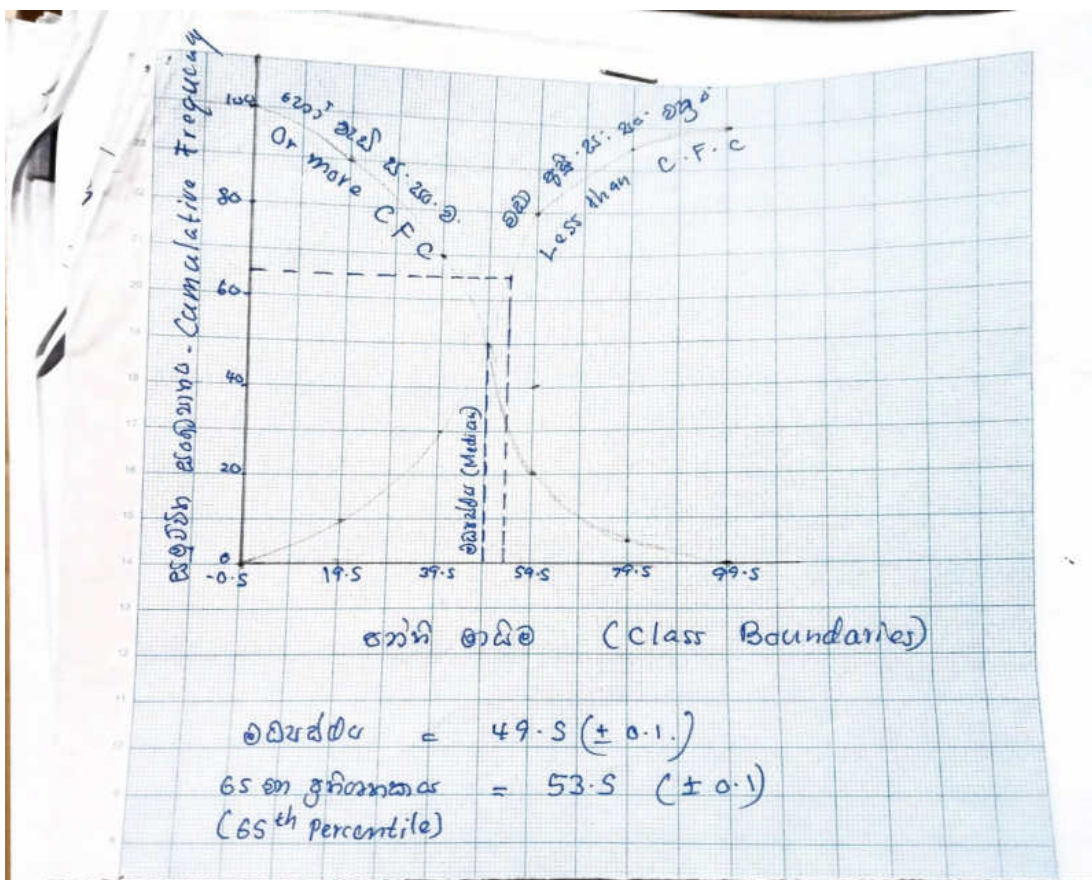 සමුච්චිත සංඛ්‍යාතය - Cumulative Frequency
100
80
60
40
20
0
හෝ වැඩි ස. සං. ව.
Or more C F C
වඩා අඩු. ස. සං. වක්‍ර
Less than C.F.C
මධ්‍යස්ථය (Median)
-0.5 19.5 39.5 59.5 79.5 99.5
පන්ති මායිම් (Class Boundaries)
මධ්‍යස්ථය = 49.5 (± 0.1.)
65 වන ප්‍රතිශතකය = 53.5 (± 0.1)
(65th Percentile)